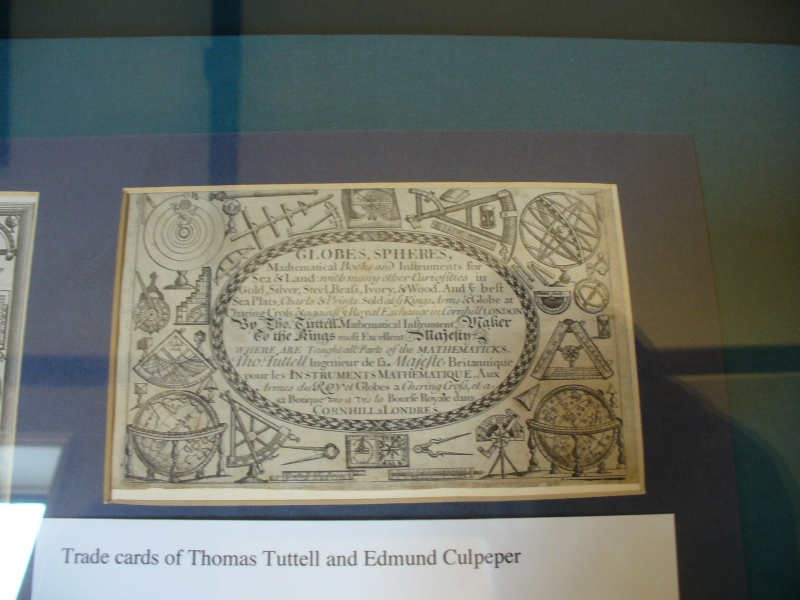 GLOBES, SPHERES,
Mathematical Books and Instruments for
Sea & Land: with many other Curiosities in
Gold, Silver, Steel, Brass, Ivory, & Wood. And ye best
Sea Plats, Charts & Prints. Sold at ye Kings Arms & Globe at
Charing Cross & against ye Royal Exchange in Cornhill LONDON
By Tho. Tuttell Mathematical Instrument Maker
To the Kings most Excellent Majesty
WHERE ARE Taught all Parts of the MATHEMATICKS.
Tho: Tuttell Ingenieur de sa Majeste Britannique
pour les INSTRUMENTS MATHEMATIQUE. Aux
Armes du ROY et Globes a Chering Cross, et a
sa Botique vis a vis la Bourse Royale dans
CORNHILL a LONDRES
Trade cards of Thomas Tuttell and Edmund Culpeper